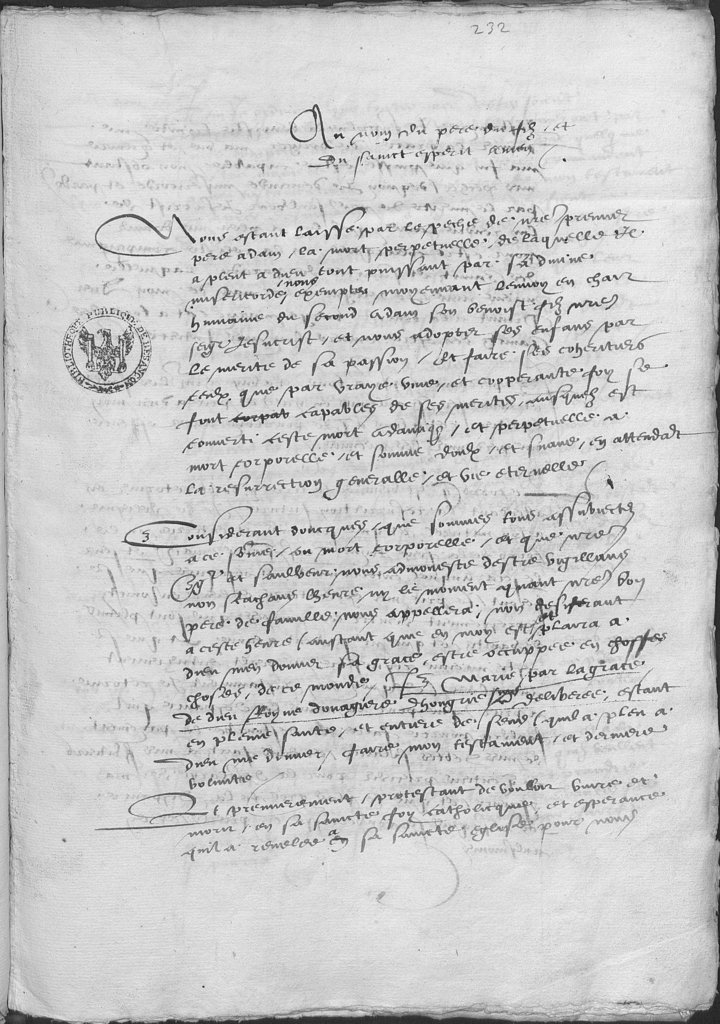 232
Au nom du pere du filz et
du sainct esperit amen
Nous estant laissé par le peche de nre premier
pere adam, la mort perpetuelle, de laquelle il
a pleut a dieu tout puissant par sa divine
misericorde nous exempter moyennant lenvoy en chair
humaine du second adam son benoist filz nre
seigr Jesucrist, et nous adopter ses enfans par
le merite de sa passion, et faire ses coheritiers
ceulx que par vraye vive, et cooperante foy se
font capables de ses merites, ausquelz est
converti ceste mort adamique, et perpetuelle a
mort corporelle, et somme doulx, et suave, en attendat
la resurrection generalle, et vie eternelle
3 Considerant doncques, que sommes tous assubiectez
a ce somme, ou mort corporelle, et que nre
sgr et saulveur nous admoneste destre vigillans
non sachans lheure, ny le moment quant nre bon
pere de famille nous appellera, nous desirant
a ceste heure autant que en moy est, et plaira a
dieu men donner sa grace, estre occuppee en choses
de ce monde, Marie par la grace
de dieu Royne douagiere dhongrie deliberee, estant
en pleine sante, et entiere de sens, quil a pleu a
dieu me donner, faire mon testament, et derniere
volunte
Et premierement, protestant de vouloir vivre et
morir, en sa saincte foy catholicque, et esperance
quil a revelee a sa saincte eglise pour nous
BIBLIOTHEQUE PUBLIQUE DE BESANCON